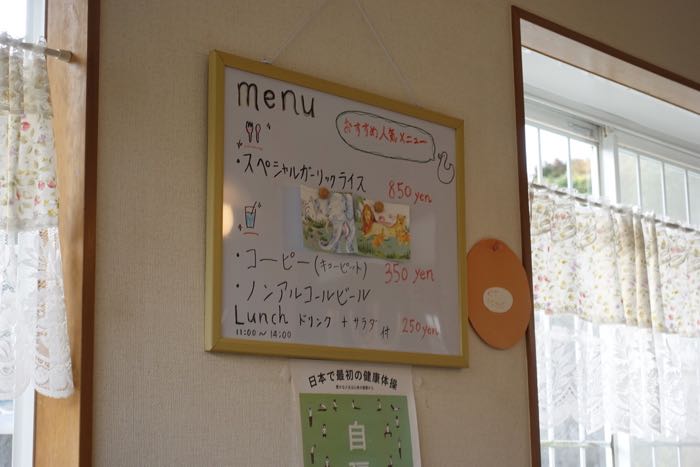 menu
おすすめ人気メニュー
・スペシャルガーリックライス 850 yen
・コーヒー (キューピット) 350 yen
・ノンアルコールビール
Lunch ドリンク + サラダ付 250 yen
11:00〜14:00
日本で最初の健康体操
自